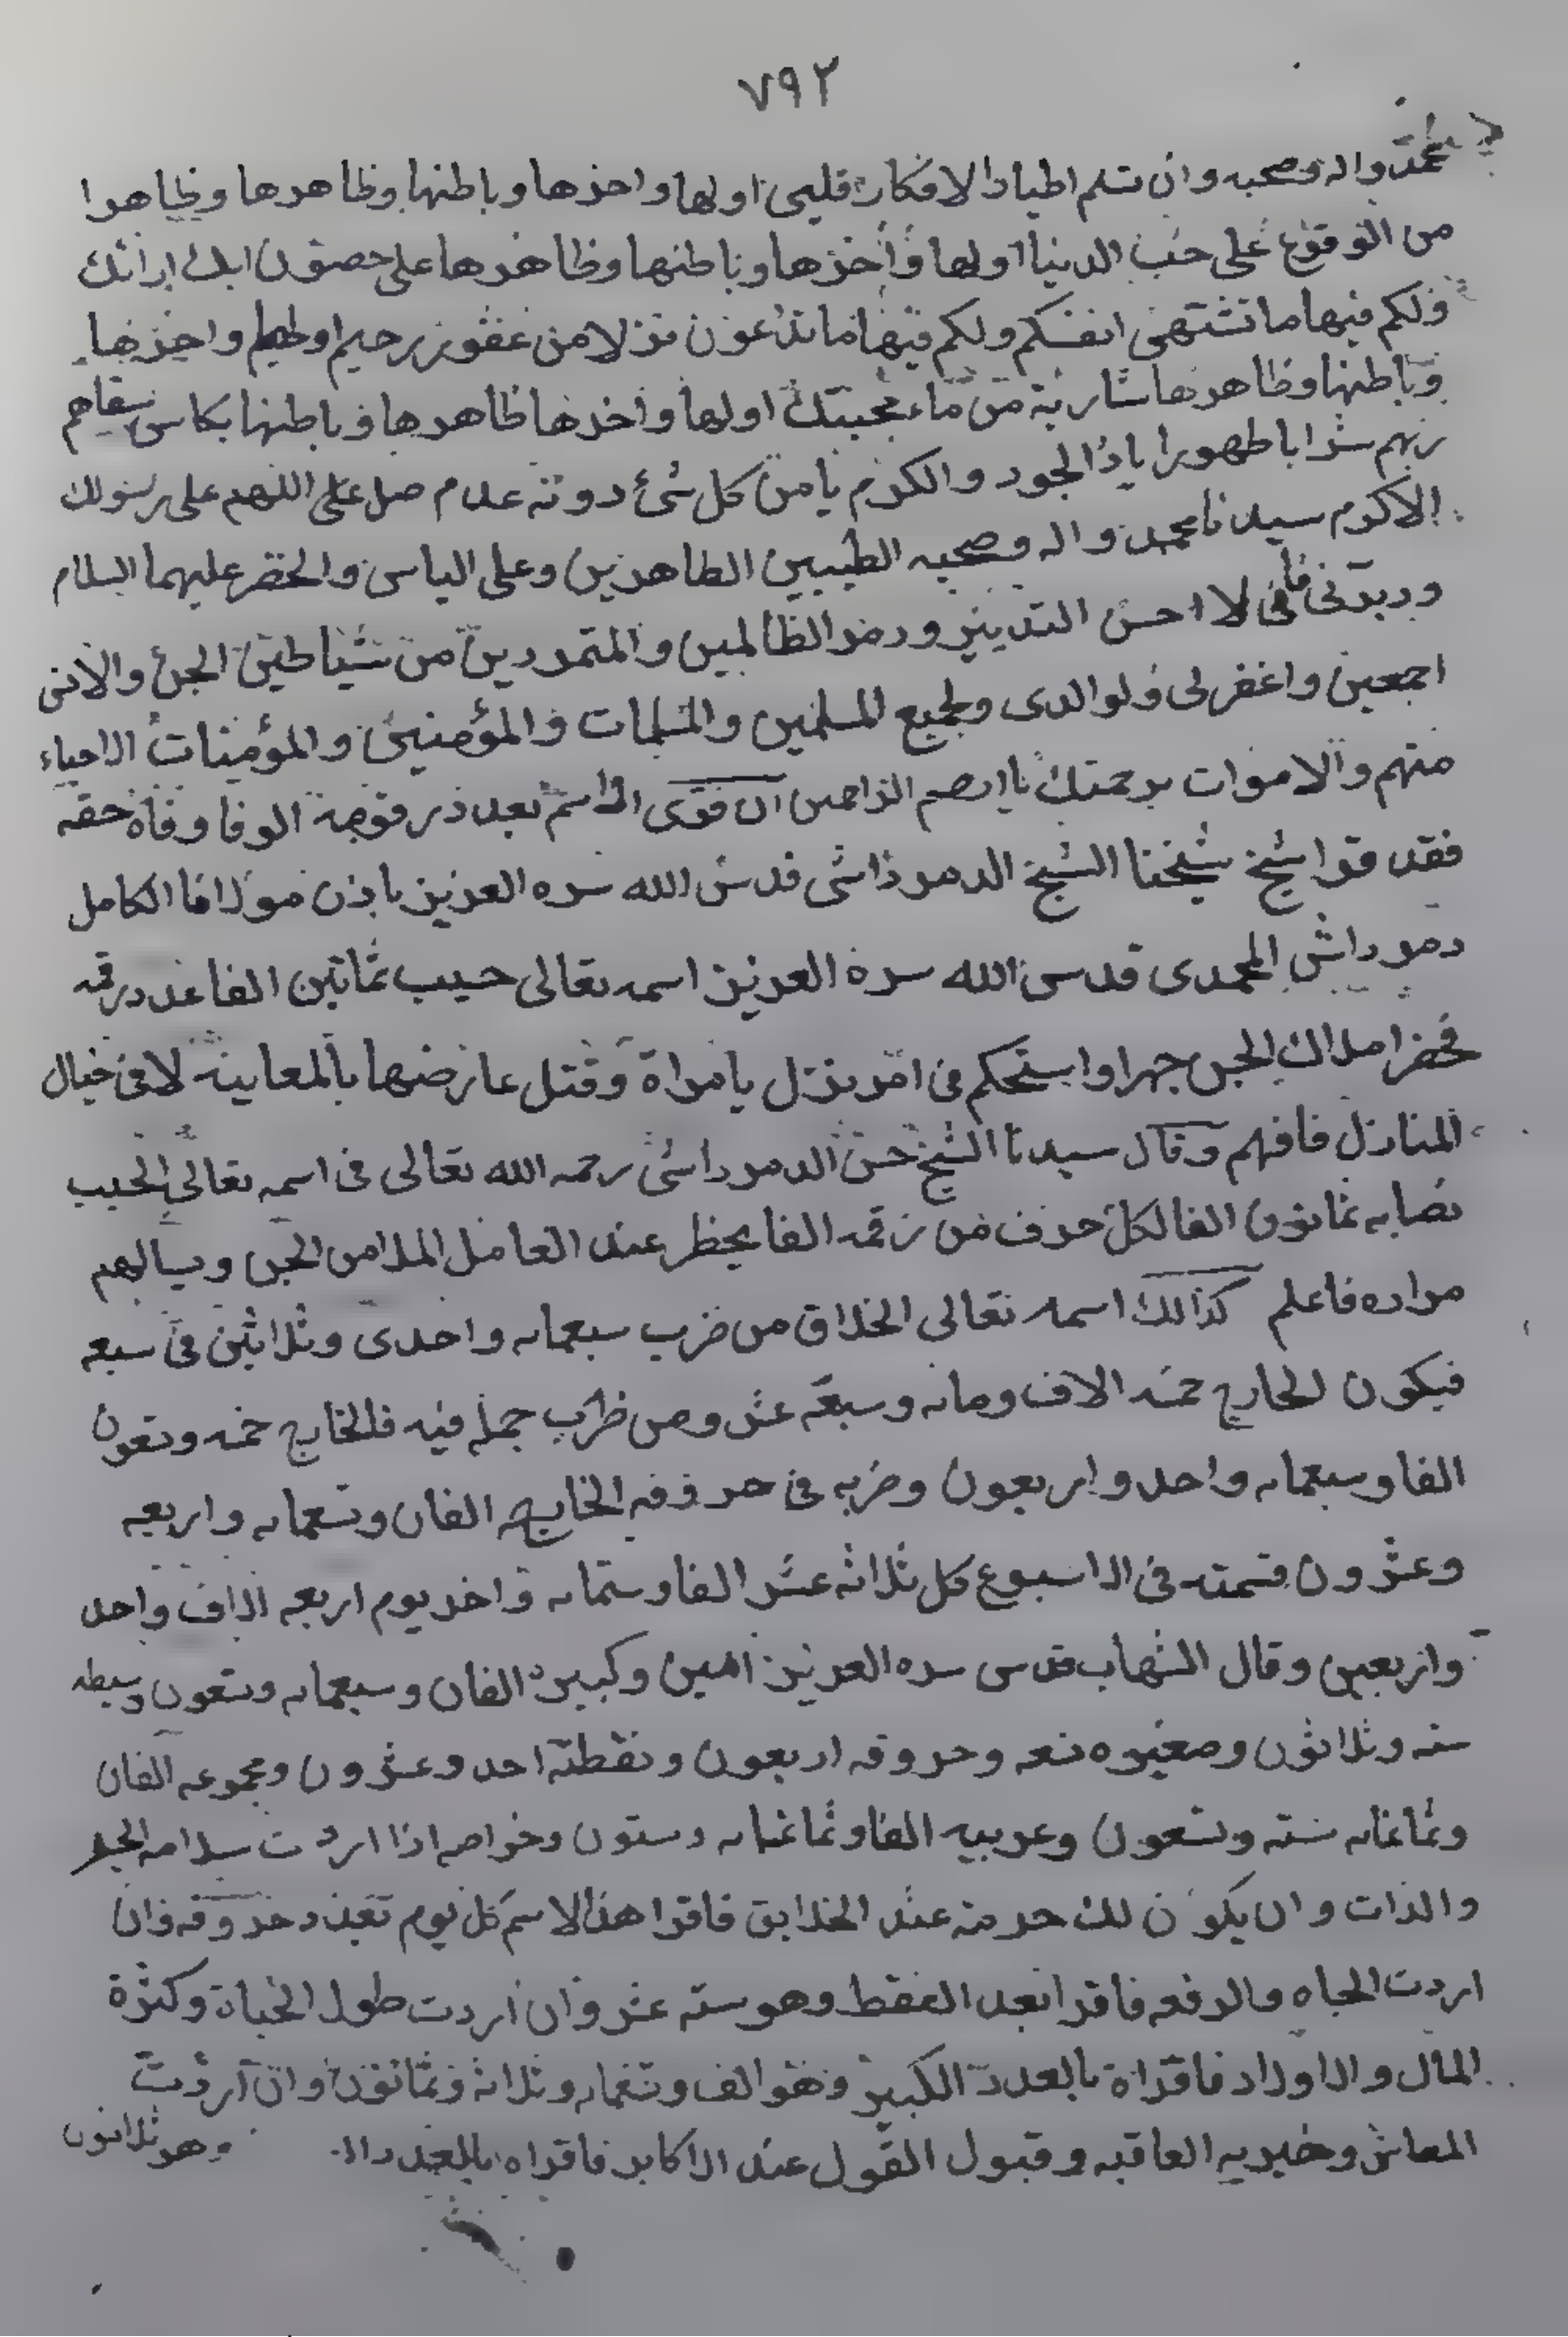 ٧٩٢
محمد واله وصحبه وان تسلم اطيار الافكار قلبى اولها واخرها وباطنها وظاهرها وظاهوا
من الوقوع على حب الدنيا اولها وأخرها وباطنها وظاهرها على حصون ابك ارائك
ولكم فيها ما تشتهى انفسكم ولكم فيها ما تدعون نزلا من غفور رحيم اولها واخرها
وباطنها وظاهرها شاربة من ماء محبتك اولها واخرها ظاهرها وباطنها بكاس سقاهم
ربهم شرابا طهورا ياذ الجود والكرم يا من كل شئ دونه عدم صل على اللهم على رسولك
الاكرم سيدنا محمد واله وصحبه الطيبين الطاهرين وعلى الياس والخضر عليهما السلام
ودبرنى فانى لا احسن التدبير ودمر الظالمين والمتمردين من شياطين الجن والانس
اجمعين واغفر لى ولوالدى ولجميع المسلمين والمسلمات والمؤمنين والمؤمنات الاحياء
منهم والاموات برحمتك ياارحم الراحمين ان قوى الاسم بعد ذر قومه الوفا وفاة حقه
فقد قرا شيخ شيخنا الشيخ الدمرداشى قدس الله سره العزيز باذن مولانا الكامل
دمرداش المحمدى قدس الله سره العزيز اسمه تعالى حسيب ثمانين الفا عدد رقمه
فحضر املاك الجن جهرا واستحكم فى امر بنزل يامراة وقتل عارضها بالمعاينة لا فى خيال
المنازل فافهم وقال سيدنا الشيخ حسن الدمرداشى رحمه الله تعالى فى اسمه تعالى الحسيب
نصابه ثمانون الفا لكل حرف من رقمه الفا يحظر عند العامل الملا من الجن ويسالهم
مراده فاعلم كذالك اسمه تعالى الخلاق من ضرب سبعمايه واحدى وثلاثين فى سبعه
فيكون الخارج خمسه الاف ومايه وسبعه عشر ومن ضرب جمله فيه فالخارج خمسه وتسعون
الفا وسبعمايه واحد واربعون وضربه فى حروفه الخارج الفان وتسعمايه واربعه
وعشرون قسمته فى الاسبوع كل ثلاثه عشر الفا وستمايه واخر يوم اربعه الاف واحد
واربعين وقال الشهاب قدس سره العزيز امين وكبيره الفان وسبعمايه وتسعون وسيطه
سته وثلاثون وصغيره تسعه وحروفه اربعون ونقطته احد وعشرون ومجموعه الفان
وثمانمايه سته وتسعون وعربيه الفا وثمانمايه وستون وخواصه اذا اردت سلامه الجسد
والذات وان يكون لك حرمه عند الخلايق فاقرا هذا الاسم كل يوم بعدد حروفه وان
اردت الجاه والرفعه فاقرا بعدد النقط وهو سته عشر وان اردت طول الحياة وكثرة
المال والاولاد فاقراة بالعدد الكبير وهو الف وتسعمايه وثلاثه وثمانون وان اردت
المعاش وخيريه العاقبه وقبول القول عند الاكابر فاقراه بالعدد
وهو ثلاثون